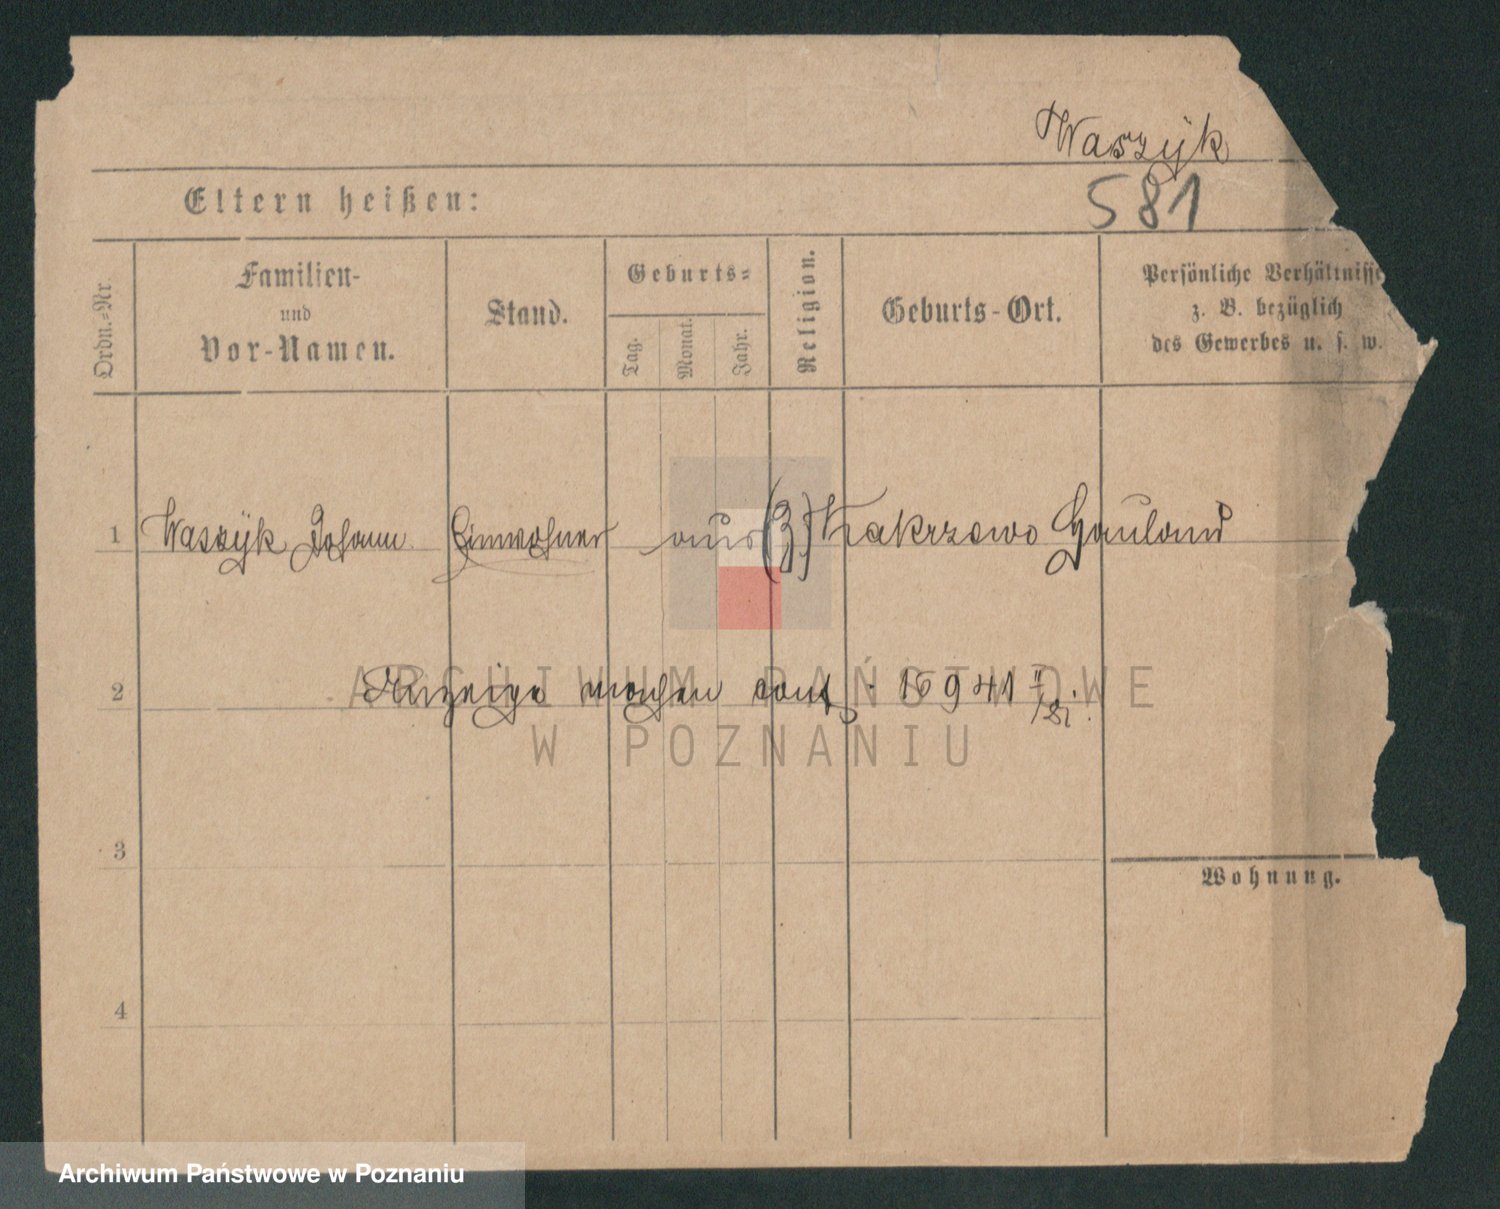 Waszÿk
581
Eltern heißen:
Ordn.-Nr.
Familien-
und
Vor-Namen.
Stand.
Geburts-
Tag.
Monat.
Jahr.
Religion.
Geburts-Ort.
Persönliche Verhältnisse
z. B. bezüglich
des Gewerbes u. s. w.
1 Waszÿk Johann Einwohner aus (Z) Zakrzewo Hauland
2 Anzeige machen 16941
ARCHIWUM PAŃSTWOWE
W POZNANIU
3
Wohnung.
4
Archiwum Państwowe w Poznaniu